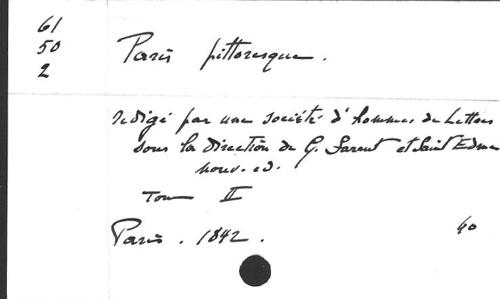 61
50
2
Paris pittoresque.
redigé par une société d'hommes de Lettres
sous la direction de G. Sarrut et Saint Edme
nouv. ed.
Tom II
Paris. 1842. 40